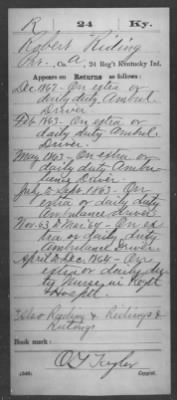 R 24 Ky.
Robert Riding
Pvt., Co. A, 24 Reg't Kentucky Inf.
Appears on Returns as follows:
Dec. 1862 - On extra or
daily duty Ambul.
Driver
Feb. 1863 - On extra or
daily duty Ambul.
Driver.
May 1863 - On extra or
daily duty Ambu-
lance Driver
July to Sept. 1863 - On
extra or daily duty
Ambulance driver
Nov. 63 to Mar. 64 - On ex-
tra or daily duty
Ambulance Driver
April to Dec. 1864 - On
extra or daily du-
ty Nurse in Regtl
Hosptl.
Also Rading & Ridings &
Ridings
Book mark:
(546) Copyist.